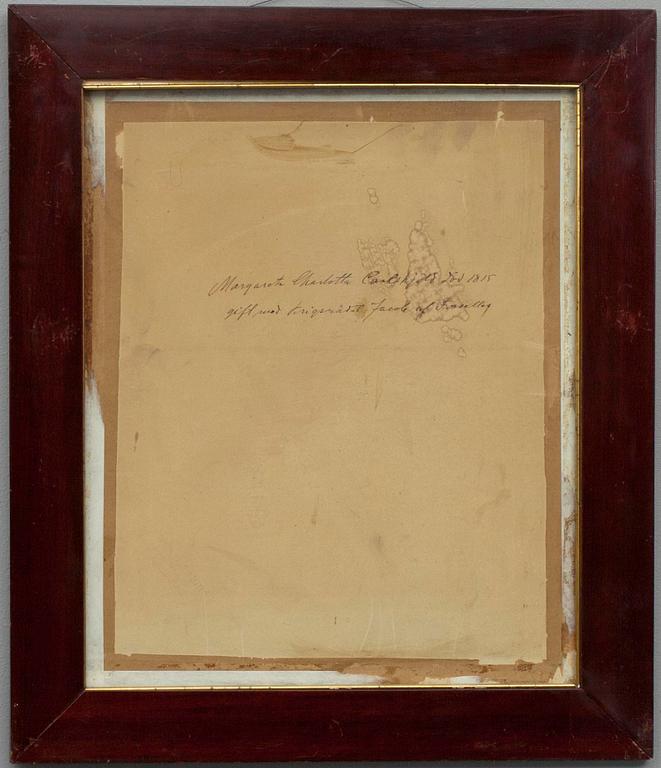 Margareta Charlotta Carlskjöld död 1815
gift med krigsrådet Jacob af